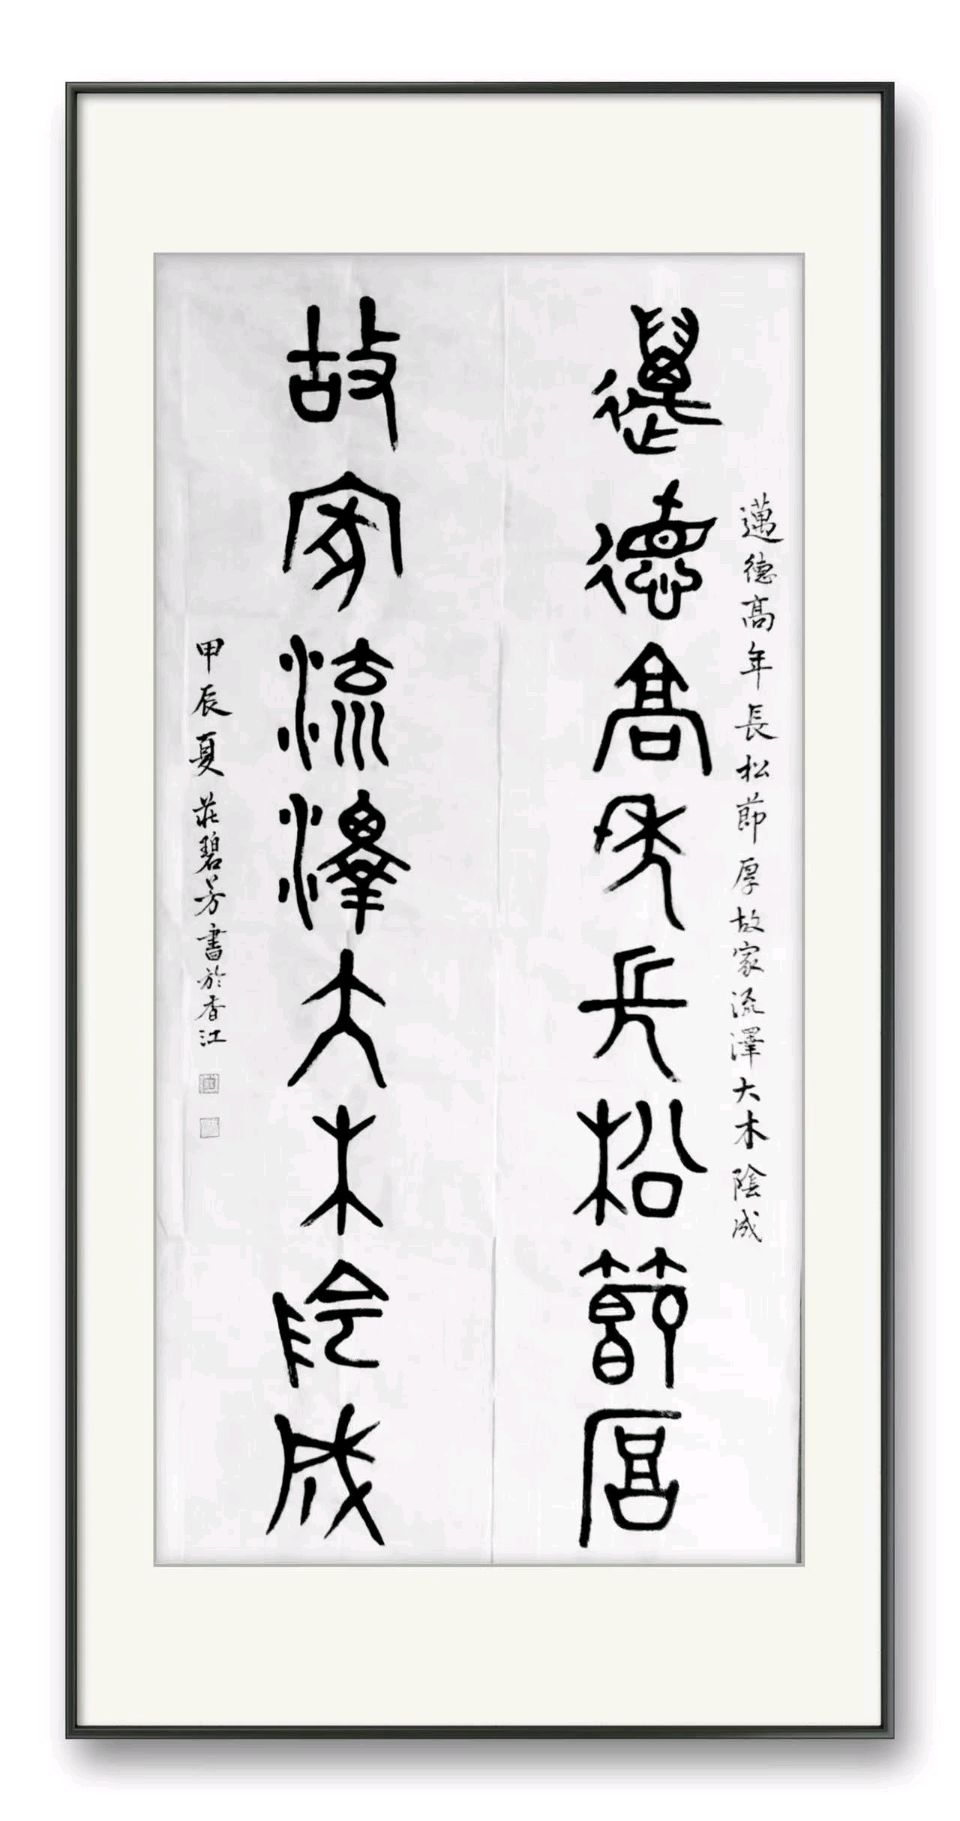 邁德高年長松節厚故家流澤大木陰成
邁德高年長松節厚
故家流澤大木陰成
甲辰夏莊碧芳書於香江